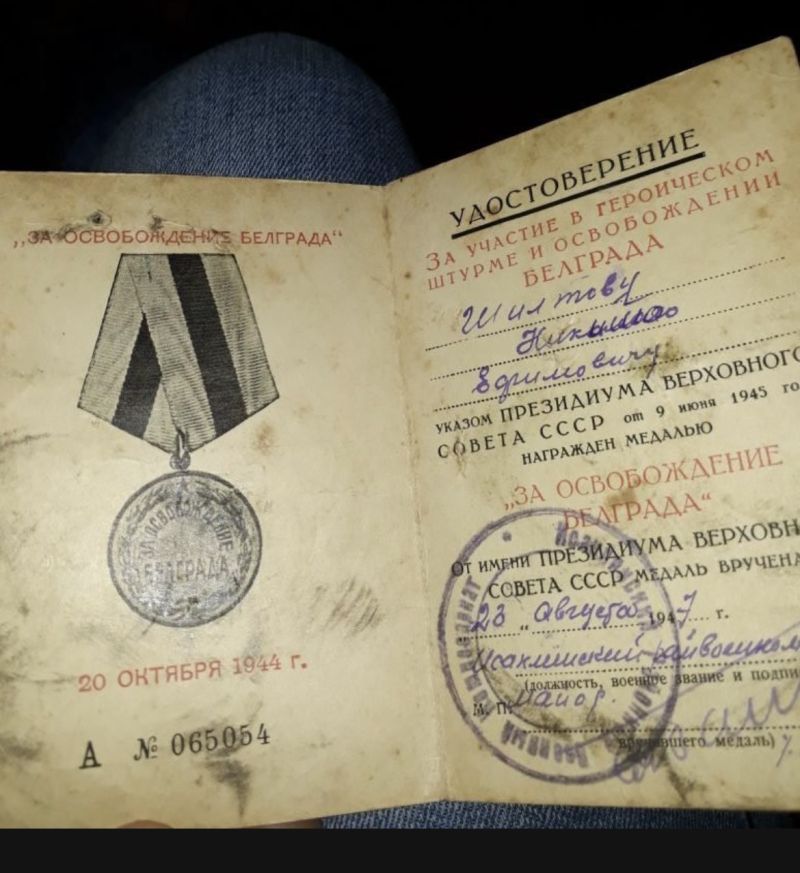 „ЗА ОСВОБОЖДЕНИЕ БЕЛГРАДА“
ЗА ОСВОБОЖДЕНИЕ
БЕЛГРАДА
20 ОКТЯБРЯ 1944 г.
А № 065054
УДОСТОВЕРЕНИЕ
ЗА УЧАСТИЕ В ГЕРОИЧЕСКОМ
ШТУРМЕ И ОСВОБОЖДЕНИИ
БЕЛГРАДА
Шилтову
Ефимовичу
УКАЗОМ ПРЕЗИДИУМА ВЕРХОВНОГО
СОВЕТА СССР от 9 июня 1945 го
НАГРАЖДЕН МЕДАЛЬЮ
„ЗА ОСВОБОЖДЕНИЕ
БЕЛГРАДА“
ОТ ИМЕНИ ПРЕЗИДИУМА ВЕРХОВН
СОВЕТА СССР МЕДАЛЬ ВРУЧЕНА
„23 „ Августа 1947 г.
Исаклинский райвоенком
(должность, военное звание и подпи
М. П. Майор.
вручившего медаль)